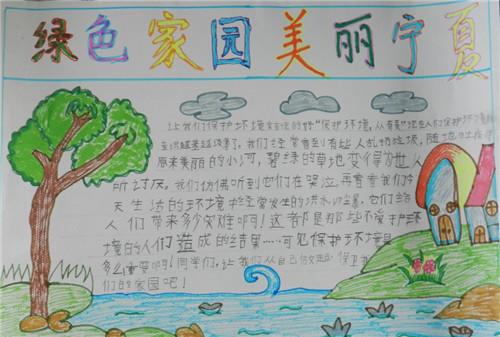 绿色家园美丽宁夏
让我们保护环境 "保护环境,从 人们保护环境
我们经常看到有些人乱扔垃圾,随地吐痰
原来美丽的小河,碧绿的草地变得为世人
所讨厌。我们仿佛听到它们在哭泣再看看我们今
天生活的环境 经常发生的洪水 它们给
人们带来多少灾难啊!这都是那些不爱护环
境的人们造成的结果……可见保护环境是
多么重要啊!同学们,让我们从自己做起 保卫
们的家园吧!